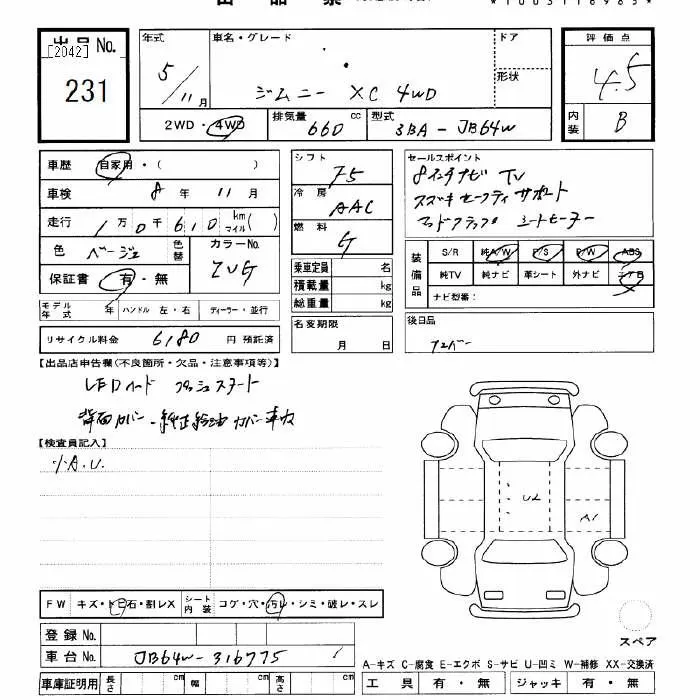 出品票
*1003116985*
出品 No.
[2042]
231
年式
5/11月
車名・グレード
ジムニー XC 4WD
ドア
形状
評価点
4.5
内装
B
2WD・4WD
排気量 660 cc
型式 3BA-JB64W
車歴 自家用・( )
車検 8年 11月
走行 1万0千610 km マイル( )
色 ベージュ 色替 カラーNo. ZVG
保証書 有・無
モデル年式 年 ハンドル 左・右 ディーラー・並行
リサイクル料金 6180 円 預託済
シフト F5
冷房 AAC
燃料 G
乗車定員 名
積載量 kg
総重量 kg
名変期限
月 日
セールスポイント
8インチナビ TV
スズキセーフティサポート
マッドフラップ シートヒーター
装備品
S/R 純A/W P/S P/W ABS
純TV 純ナビ 革シート 外ナビ エアB
ナビ型番:
後日品
ナンバー
【出品店申告欄(不良箇所・欠品・注意事項等)】
LEDヘッド プッシュスタート
背面カバー・純正給油カバー車内
【検査員記入】
A.U.
U2
A1
FW キズ・トビ石・割レX シート内装 コゲ・穴・汚レ・シミ・破レ・スレ
登録 No.
車台 No. JB64W-316775
車庫証明用 長さ cm 幅 cm 高さ cm
スペア
A-キズ C-腐食 E-エクボ S-サビ U-凹ミ W-補修 XX-交換済
工具 有・無 ジャッキ 有・無